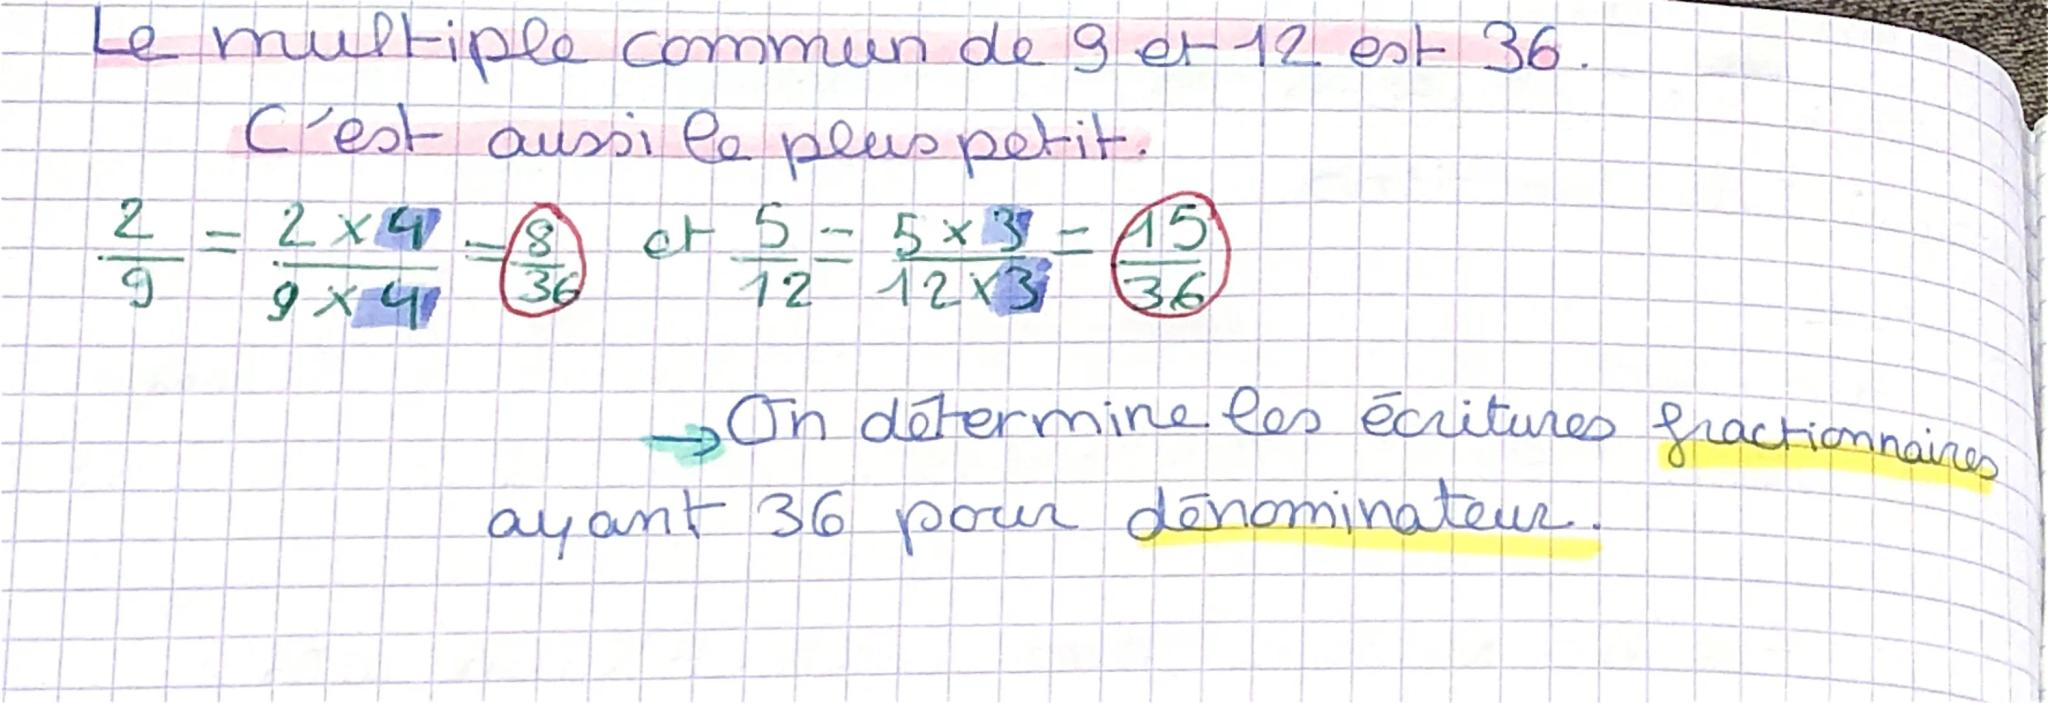 Le multiple commun de 9 et 12 est 36.
C'est aussi le plus petit.
2/9 = 2 × 4 / 9 × 4 = 8/36 et 5/12 = 5 × 3 / 12 × 3 = 15/36
→ On détermine les écritures fractionnaires
ayant 36 pour dénominateur.